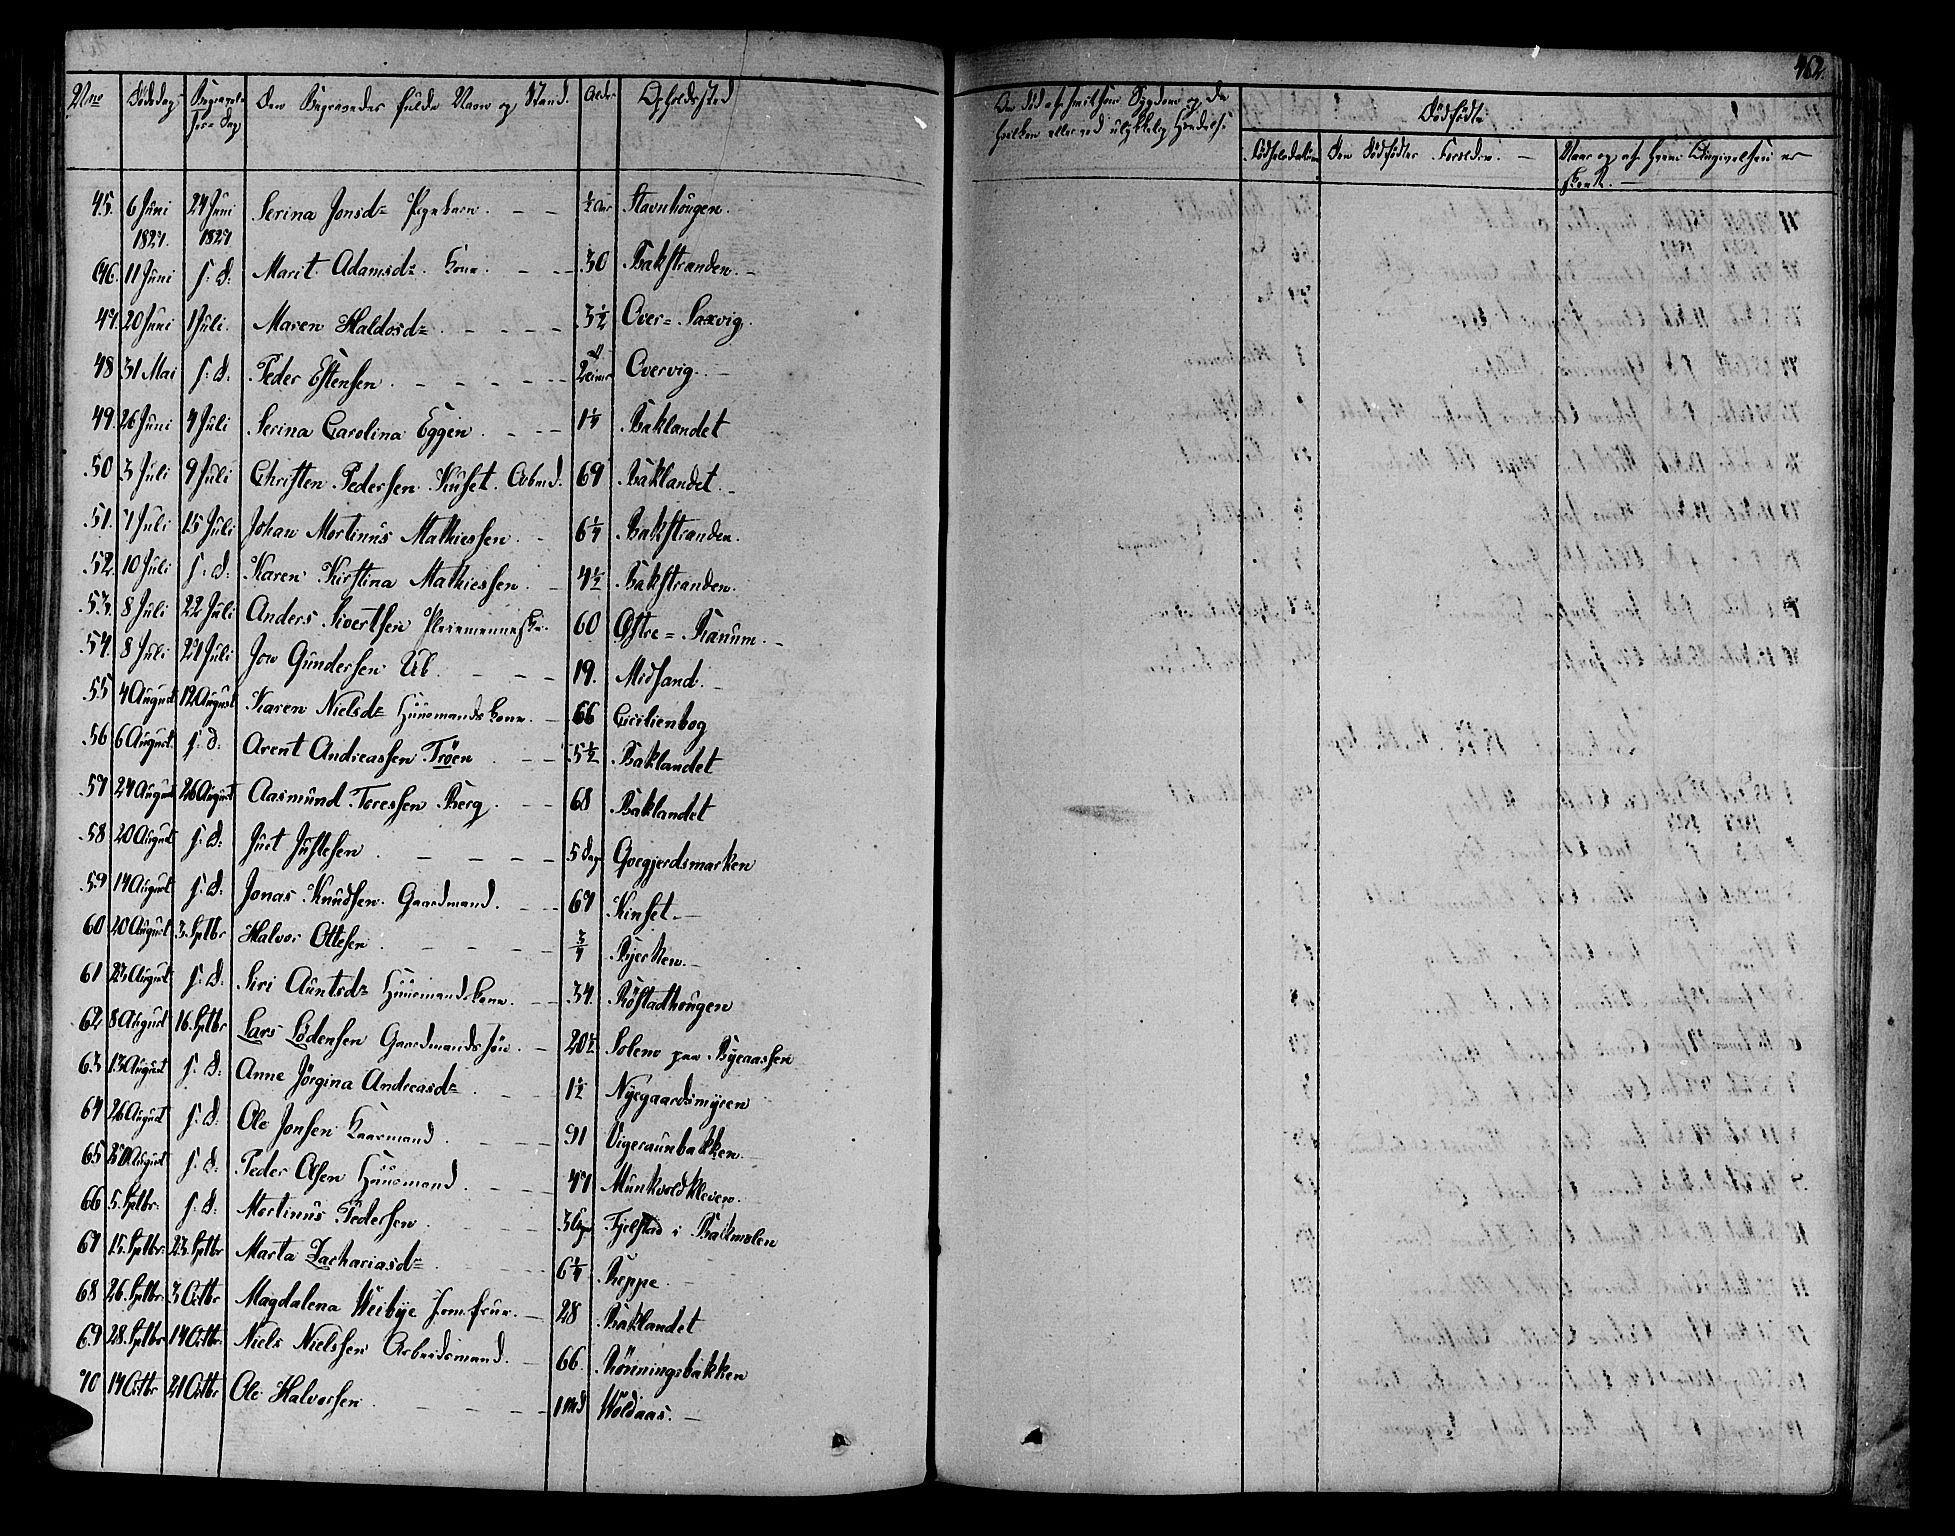 462.
Nno Dødsdag Begravel- Den Begravedes fulde Navn og Stand. Alder Opholdssted
ses-Dag
Dødfødte
Den Dødfødtes Forældre. —
45. 6 Juni 24 Juni Serina Jonsd= Pigebarn. — — ½ Aar Stavnhougen.
1827. 1827.
46. 11 Juni s: D: Marit Adamsd= Kone. — — 30 Bakstranden. —
47 20 Juni 1 Juli. Maren Haldosd= — — — 3½ Over= Saxvig.
48 31 Mai s: D: Peder Estensen. — — — Overvig. —
49. 26 Juni 4 Juli Serina Carolina Eggen. — — 1¼ Baklandet
50 3 Juli 9 Juli Christen Pedersen Kuset. Arbmd. 69 Baklandet. —
51. 7 Juli 15 Juli Johan Mortinus Mathiessen. — 6¼ Bakstranden.
52. 10 Juli s: D: Karen Kirstina Mathiessen. — 4½ Bakstranden.
53. 8 Juli 22 Juli Anders Sivertsen 60 Østre= Ranum. —
54. 8 Juli 22 Juli Jon Gundersen Ub. — — — 19. Midsand. —
55 4 August 12 August Karen Nielsd= Huusmandskone. — 66 Cecilienbog
56 6 August. s: D: Arent Andreassen Trøen. — — 5½ Baklandet
57 24 August 26 August Aasmund Toressen Berg. — — 68 Baklandet
58 20 August s: D: Just Justesen. — — — 5 Dage Goegjerdsmarken
59 14 August s: D: Jonas Knudsen. Gaardmand. — — 67 Kinset. —
60 20 August 3. Sptbr Halvor Ottesen. — — — ¾ Bjerken. —
61 23 August s: D: Siri Auntsd= Huusmandskone. — — 34. Røstadhougen
62 8 August 16. Sptbr Lars Lødensen Gaardmandssøn. — Solem paa Byeaassen
63 13 August s: D: Anne Jørgina Andreasd= — — 1½ Nyegaardsmyren
64 26 August s: D: Ole Jonsen Kaarmand. — — — 91 Vigeraunbakken. —
65 August s: D: Peder Olsen Huusmand. — — 47 Munkvoldkleven.
66 5. Sptbr. s: D: Mortinus Pedersen. — — — 3 Fjelstad i Bakmolen
67 15. Sptbr 23. Sptbr Marta Zachariasd= — — 6¼ Reppe. —
68 26. Sptbr 3 Octbr Magdalena Weibye Jomfrue. — 28 Baklandet
69 28. Sptbr 14 Octbr Niels Nielssen Arbeidsmand. — 66. Rønningsbakken
70 14 Octbr 21 Octbr Ole Halvorsen. — — — 1 Md Woldaas. —